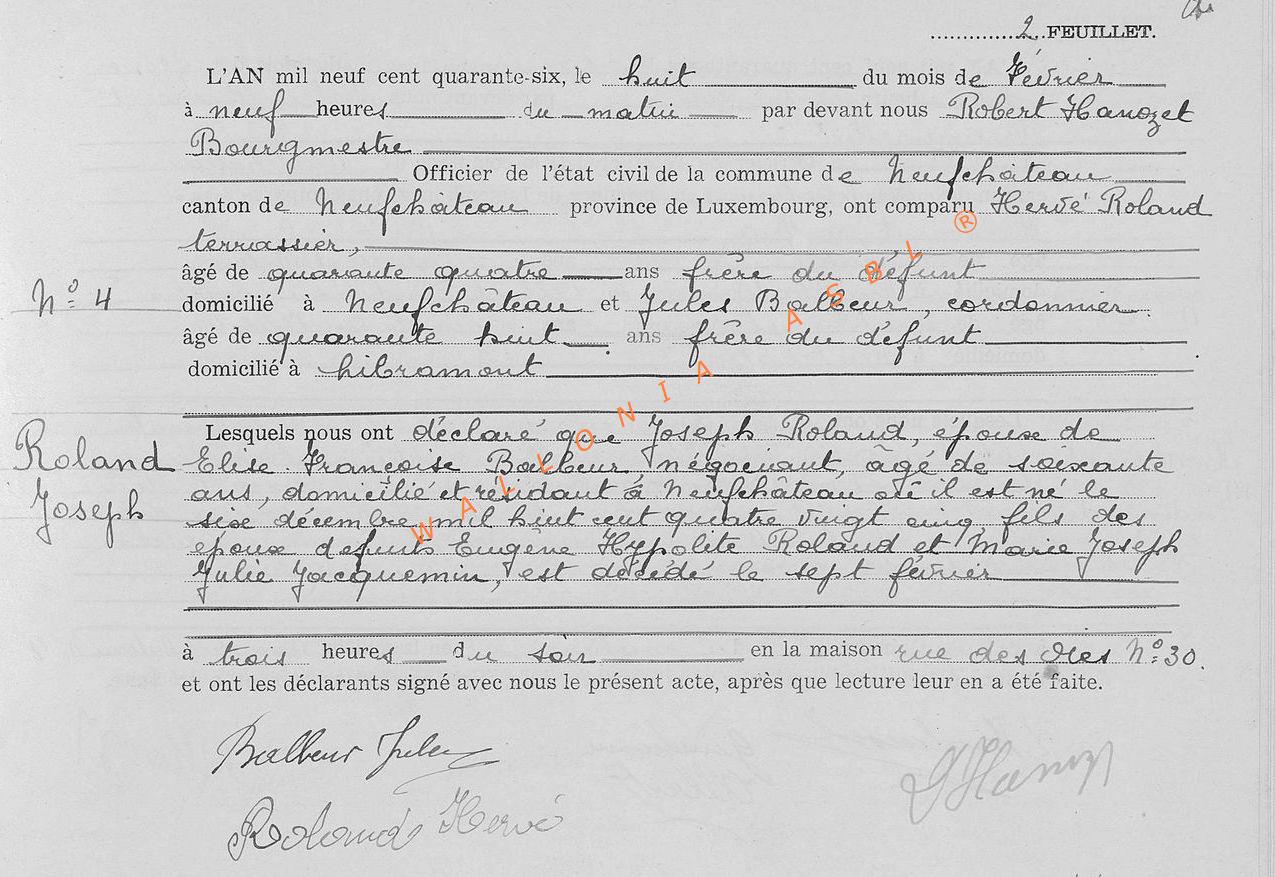 2 FEUILLET.
L'AN mil neuf cent quarante-six, le huit du mois de Février
à neuf heures du matin par devant nous Robert Hanozet
Bourgmestre
Officier de l'état civil de la commune de Neufchâteau
canton de Neufchâteau province de Luxembourg, ont comparu Hervé Roland
terrassier,
âgé de quarante quatre ans frère du défunt
N° 4 domicilié à Neufchâteau et Jules Balbeur, cordonnier
âgé de quarante huit ans frère du défunt
domicilié à Libramont
Lesquels nous ont déclaré que Joseph Roland, époux de
Roland Elise Françoise Balbeur, négociant, âgé de soixante
ans, domicilié et résidant à Neufchâteau où il est né le
Joseph six décembre mil huit cent quatre vingt cinq, fils des
époux defunts Eugène Hypolite Roland et Marie Joseph
Julie Jacquemin, est décédé le sept février
à trois heures du soir en la maison rue des N° 30.
et ont les déclarants signé avec nous le présent acte, après que lecture leur en a été faite.
Balbeur Jules
Roland Hervé
WALLONIA ASBL ®